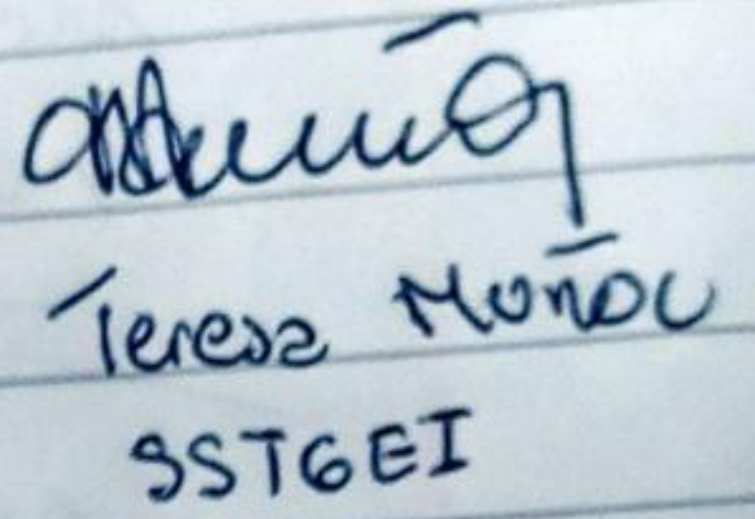 Teresa Muñoz
SSTGEI